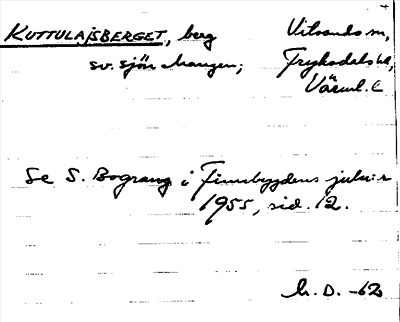 KUTTULAJSBERGET, berg
sv. sjön Mangen;
Vitsands sn,
Fryksdals hd,
Värml. l
Se S. Bograng i Finnbygdens julnr
1955, sid. 12.
h. D. -62